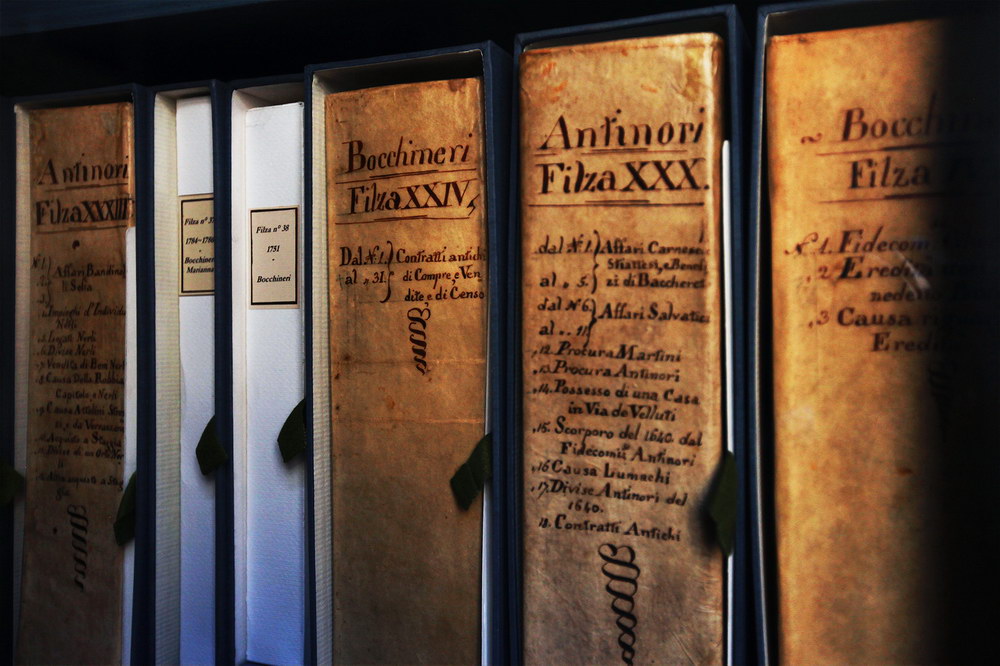 Antinori
Filza XXXIII
Affari Bandini
Divise Nerli
Vendita di Beni Nerli
Causa Della Robbia
Capitolo, e Nerli
Filza n° 37
1784-1786
Bocchineri
Marianna
Filza n° 38
1751
Bocchineri
Bocchineri
Filza XXIV,
Dal N. 1. Contratti antichi
al „ 31. di Compre, e Ven
dite, e di Censo
Antinori
Filza XXX.
dal N. 1. Affari Carnesec
Sfiattesi, e Benedi
al „ 5. zi di Baccheret
dal N. 6. Affari Salvatici
al „ 11.
„ 12. Procura Martini
„ 13. Procura Antinori
„ 14. Possesso di una Casa
in Via de Velluti
„ 15. Scorporo del 1640. dal
Fidecomis° Antinori
„ 16 Causa Lumachi
„ 17. Divise Antinori del
1640.
18. Contratti Antichi
Bocch
Filza
N. 1. Fidecom
„ 2 Ered
nede
„ 3 Causa
Ered